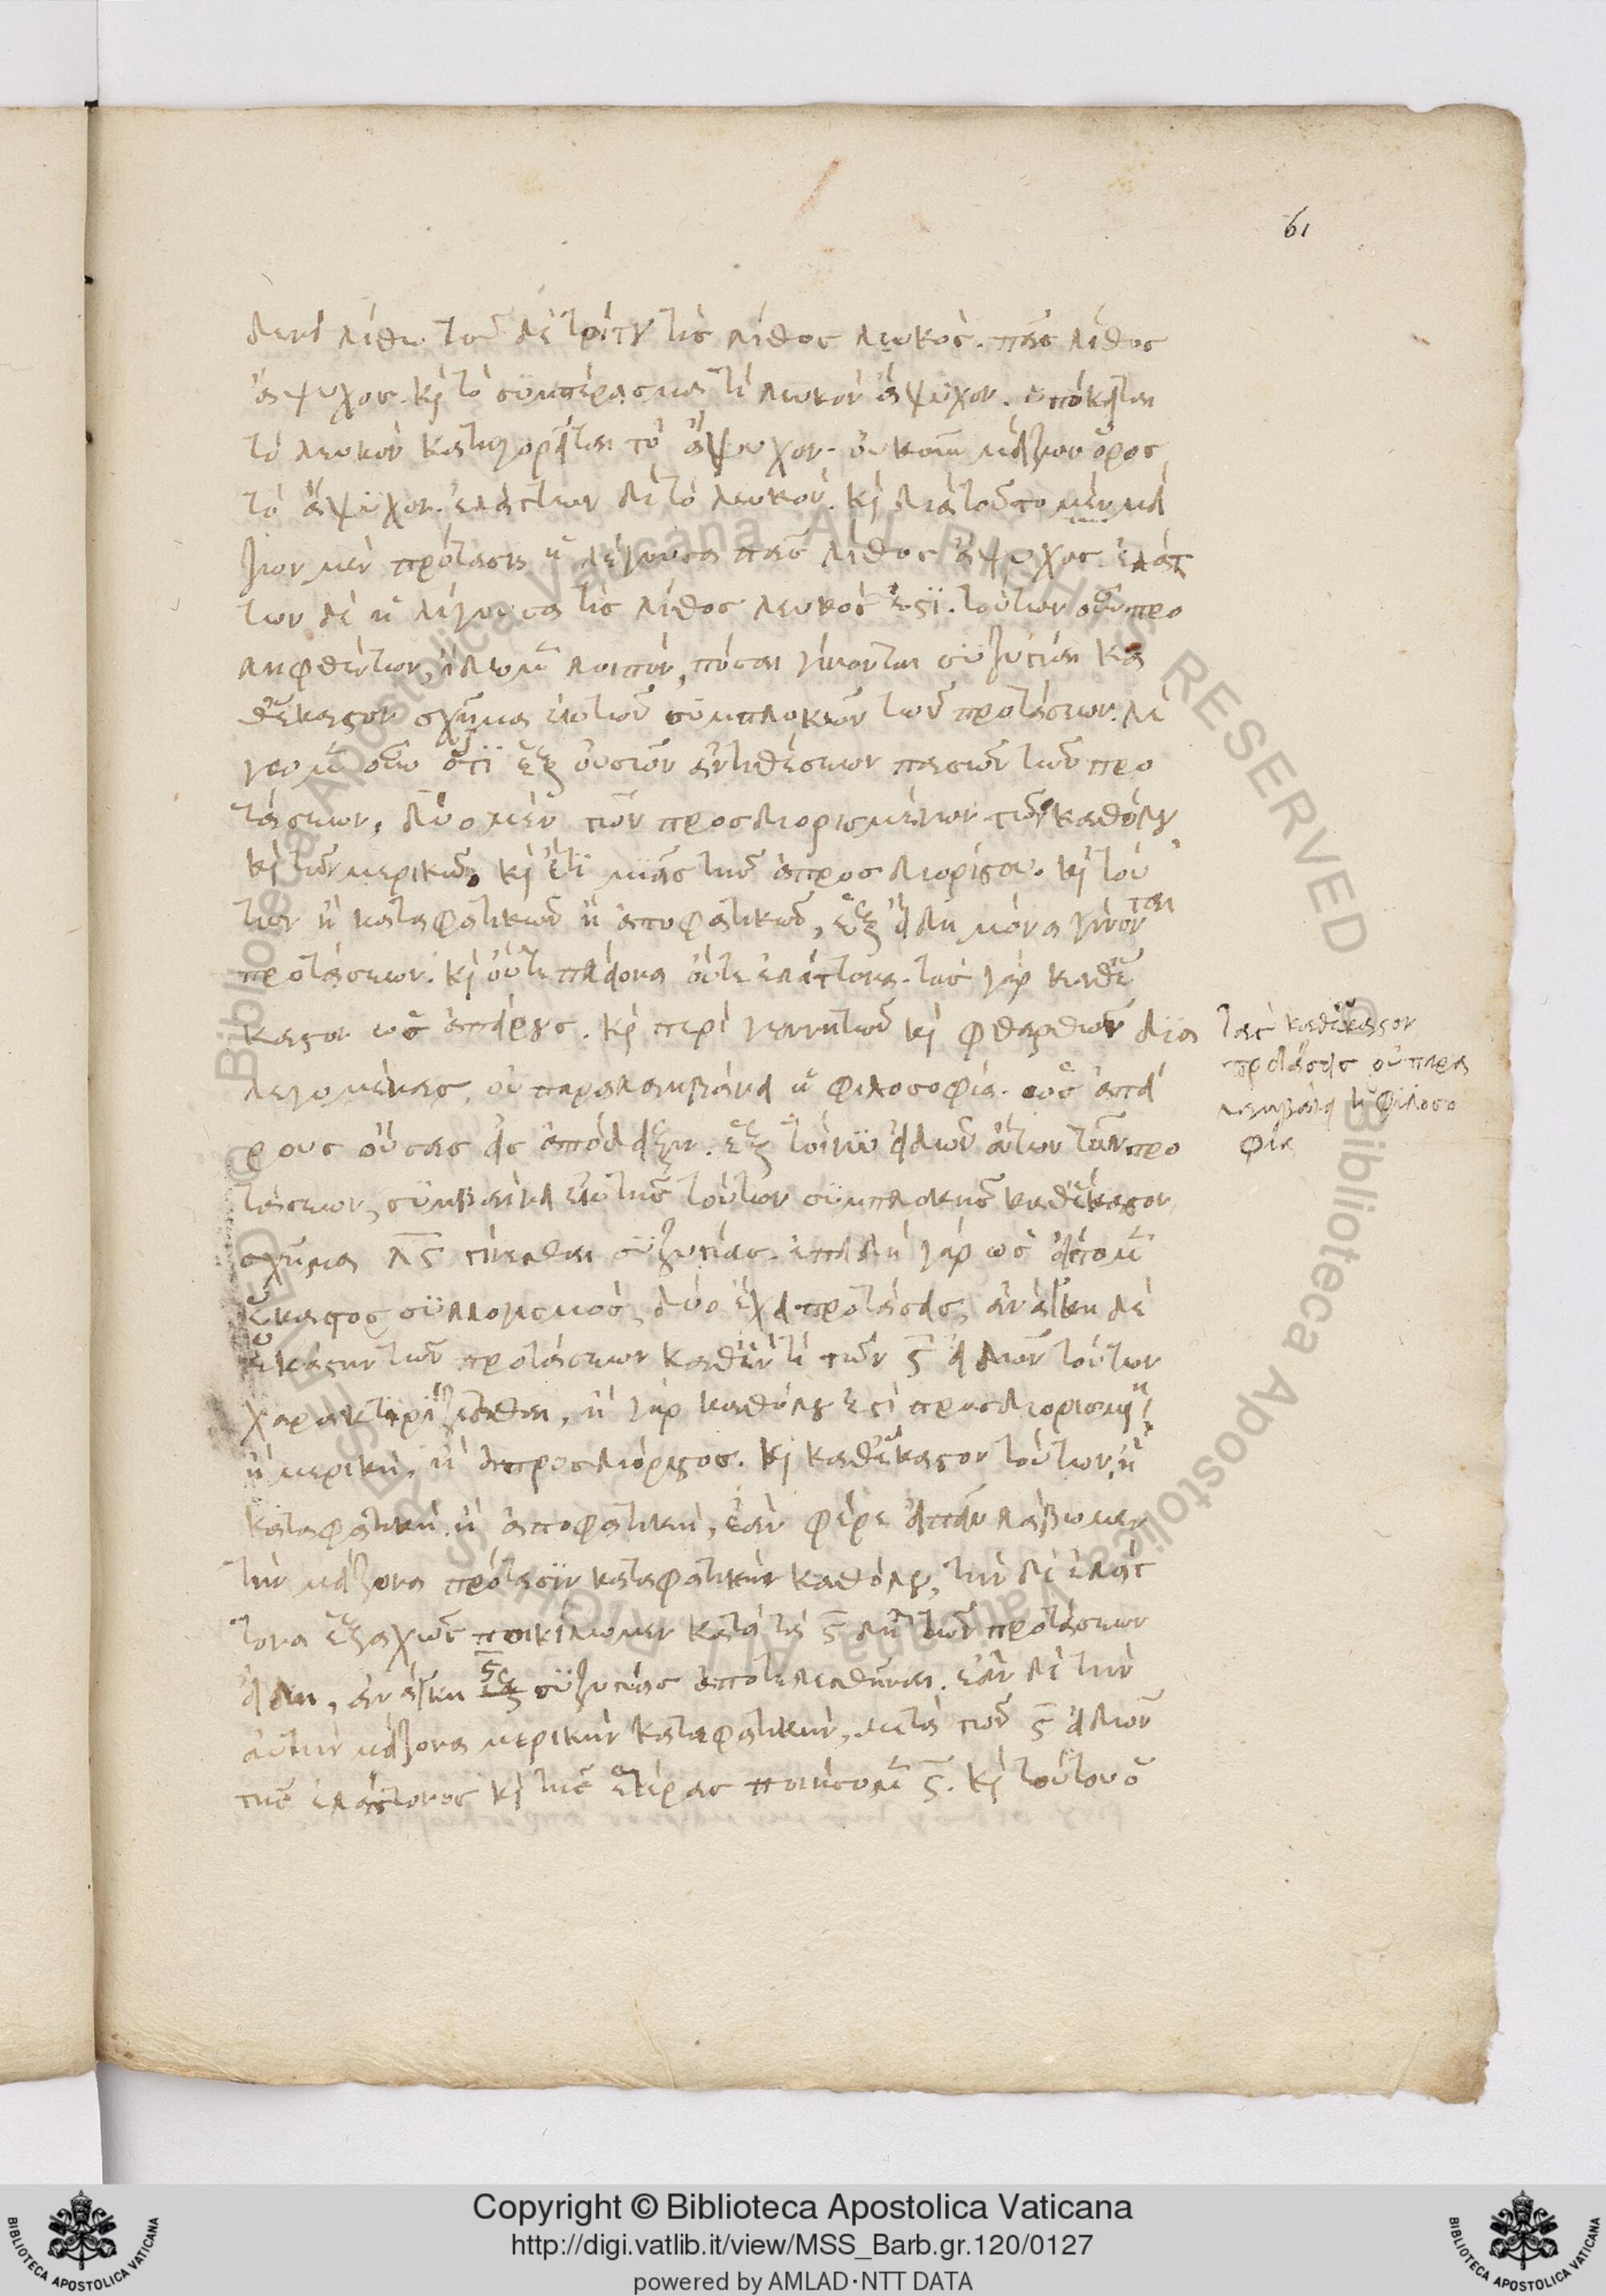 61
δενὶ λίθω τοῦ δὲ τρίτου τὶς λίθος λευκός. πᾶς λίθος
ἄψυχος. καὶ τὸ συμπέρασμα τὶ λευκὸν ἄψυχον. ὑπόκειται
τὸ λευκὸν κατηγορεῖται τὸ ἄψυχον. οὐκοῦν μείζων ὅρος
τὸ ἄψυχον. ἐλάττων δὲ τὸ λευκόν. καὶ διὰ τοῦτο μὲν μεί
ζων μὲν πρότασις ἡ λέγουσα πᾶς λίθος ἄψυχος. ἐλάτ
των δὲ ἡ λέγουσα τὶς λίθος λευκός ἐστι. τούτων οὖν προ
ληφθέντων, ἴδωμεν λοιπὸν, πόσαι γίνονται συζυγίαι κα
θ' ἕκαστον σχῆμα ἐκ τῶν συμπλοκῶν τῶν προτάσεων. λέ
γομεν οὖν ὅτι ἓξ οὐσῶν ἀντιθέσεων πασῶν τῶν προ
τάσεων. δύο μὲν τῶν προσδιορισμένων τῶν καθόλου
καὶ τῶν μερικῶν. καὶ ἔτι μιᾶς τῶν ἀπροσδιορίστων. καὶ τού
των ἢ καταφατικῶν ἢ ἀποφατικῶν, ἓξ εἴδη μόνα γίνονται
προτάσεων. καὶ οὔτε πλείονα οὔτε ἐλάττονα. τὰς γὰρ καθ' ἕ
καστον ὡς ἀπείρους. καὶ περὶ γεννητῶν καὶ φθαρτῶν δια
λεγομένας, οὐ παραλαμβάνει ἡ φιλοσοφία. ὡς ἀπεί
ρους οὔσας εἰς ἀπόδειξιν. ἓξ τοίνυν εἰδῶν ὄντων τῶν προ
τάσεων, συμβαίνει ἐκ τῆς τούτων συμπλοκῆς καθ' ἕκαστον
σχῆμα λϛ γίνεσθαι συζυγίας. ἐπειδὴ γὰρ ὡς εἴπομεν
ἕκαστος συλλογισμὸς, δύο ἔχει προτάσεις, ἀνάγκη δὲ
ἑκάστην τῶν προτάσεων καθ' ἕν τι τῶν ϛ εἰδῶν τούτων
χαρακτηρίζεσθαι, ἢ γὰρ καθόλου ἐστὶ προσδιορισμένη,
ἢ μερική. ἢ ἀπροσδιόριστος. καὶ καθ' ἕκαστον τούτων, ἢ
καταφατική. ἢ ἀποφατική, ἐὰν φέρε εἰπεῖν λάβωμεν
τὴν μείζονα πρότασιν καταφατικὴν καθόλου, τὴν δὲ ἐλάτ
τονα ἑξαχῶς ποικίλωμεν κατὰ τὰ ϛ δὴ τῶν προτάσεων
εἴδη, ἀνάγκη ϛ συζυγίας ἀποτελεσθῆναι. ἐὰν δὲ τὴν
αὐτὴν μείζονα μερικὴν καταφατικὴν, μετὰ τῶν ϛ εἰδῶν
τῆς ἐλάττονος καὶ τῆς ἑτέρας ποιήσομεν ϛ. καὶ τούτου ὁ
τὰς καθ' ἕκαστον
προτάσεις οὐ παρα
λαμβάνει ἡ φιλοσο
φία
Copyright © Biblioteca Apostolica Vaticana
http://digi.vatlib.it/view/MSS_Barb.gr.120/0127
powered by AMLAD·NTT DATA